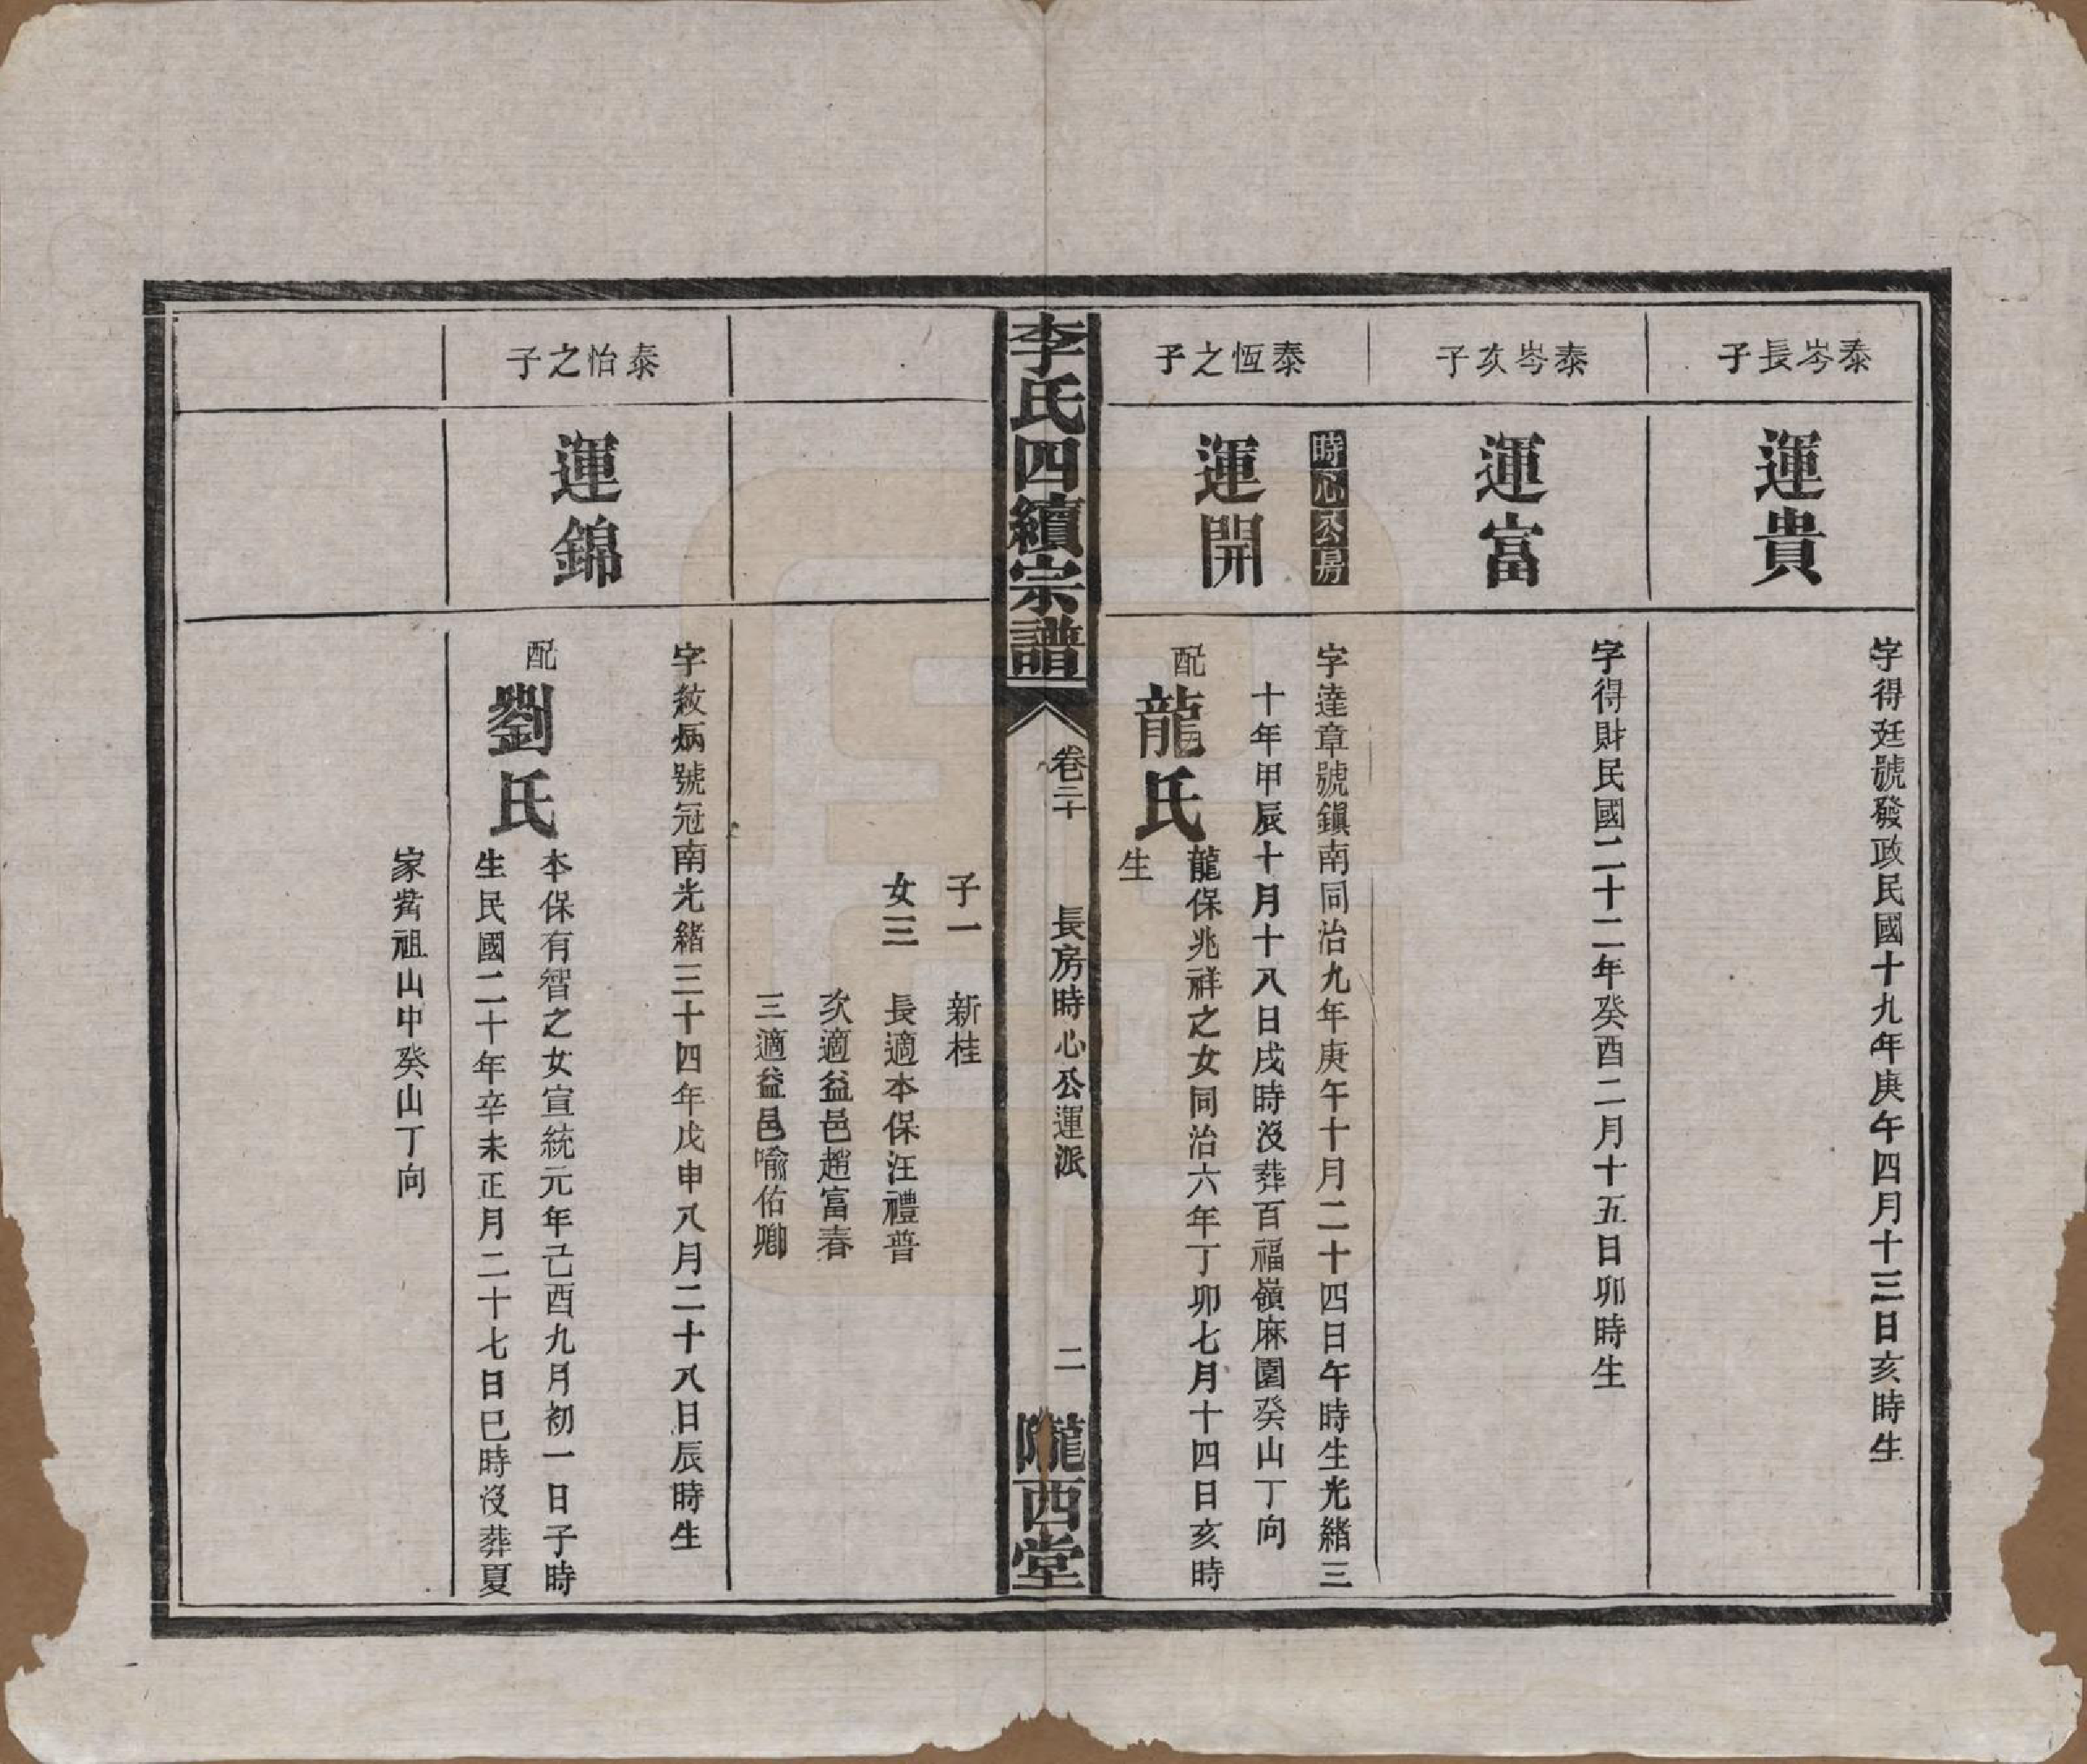 泰岑長子
運貴
字得廷號發政民國十九年庚午四月十三日亥時生
泰岑次子
運富
字得財民國二十二年癸酉二月十五日卯時生
時心公房
泰恆之子
運開
字達章號鎮南同治九年庚午十月二十四日午時生光緒三
十年甲辰十月十八日戌時沒葬百福嶺麻園癸山丁向
配
龍氏
龍保兆祥之女同治六年丁卯七月十四日亥時
生
李氏四續宗譜
卷二十
長房時心公運派
二
隴西堂
子一 新桂
女三 長適本保汪禮普
次適益邑趙富春
三適益邑喻佑卿
泰怡之子
運錦
字敘炳號冠南光緒三十四年戊申八月二十八日辰時生
配
劉氏
本保有智之女宣統元年己酉九月初一日子時
生民國二十年辛未正月二十七日巳時沒葬夏
家嵩祖山中癸山丁向